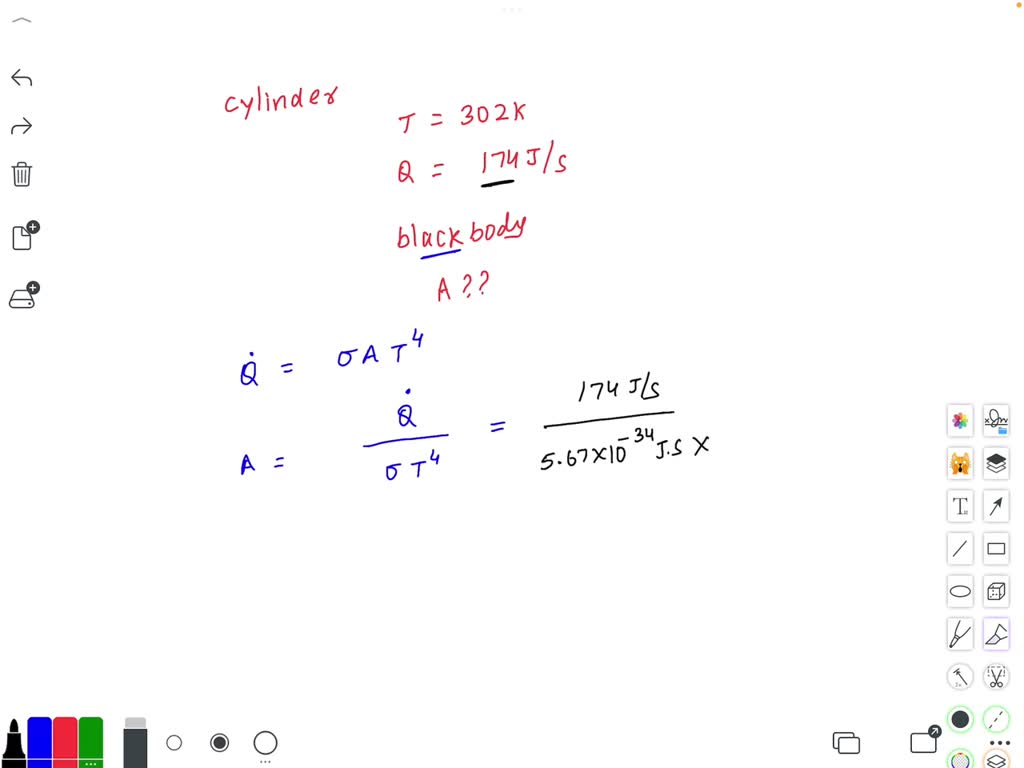 cylinder
T = 302K
Q = 174 J/s
blackbody
A ??
Q̇ = σ A T⁴
A = Q̇ / σ T⁴ = 174 J/s / 5.67×10⁻³⁴ J.s ×